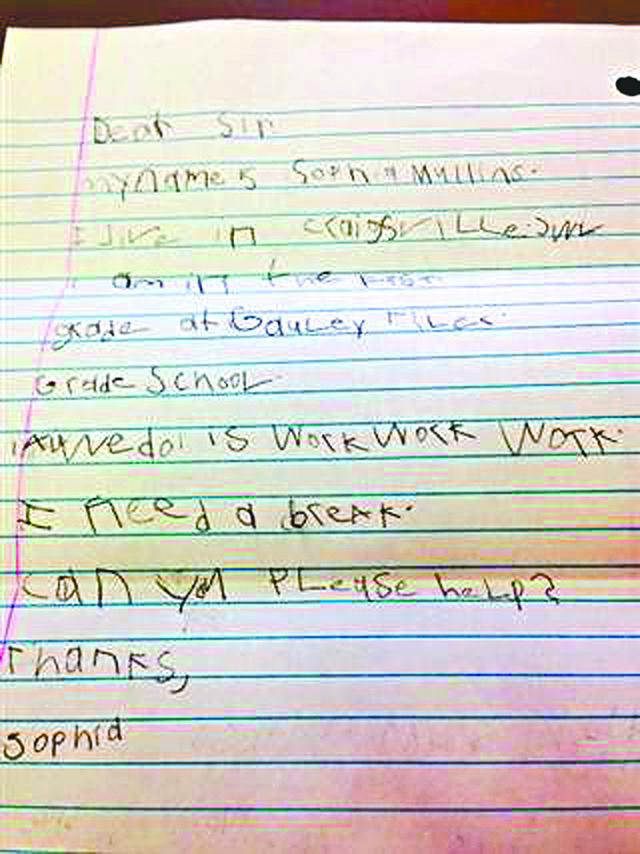 Dear Sir
my name is Sophia Mullins.
I live in Craigsville. WV
am in the
grade at Gauley River
Grade School
All we do is Work Work Work.
I need a break.
can you Please help?
Thanks,
Sophia